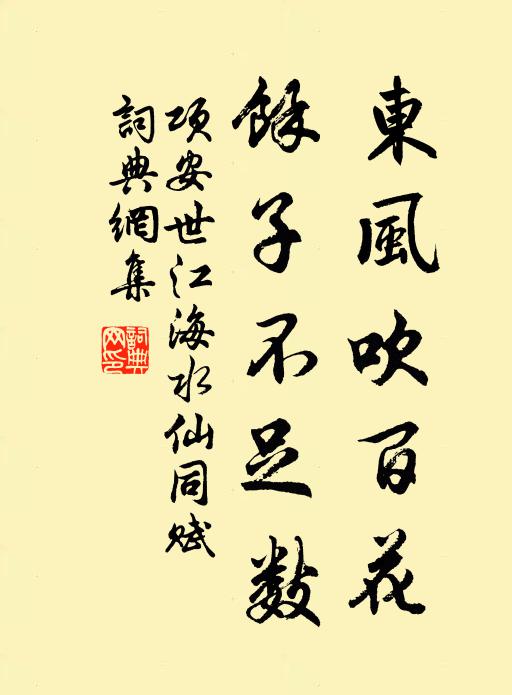 東風吹百花
餘子不足數
項安世江海水仙同賦
詞典網集
詞典
網印